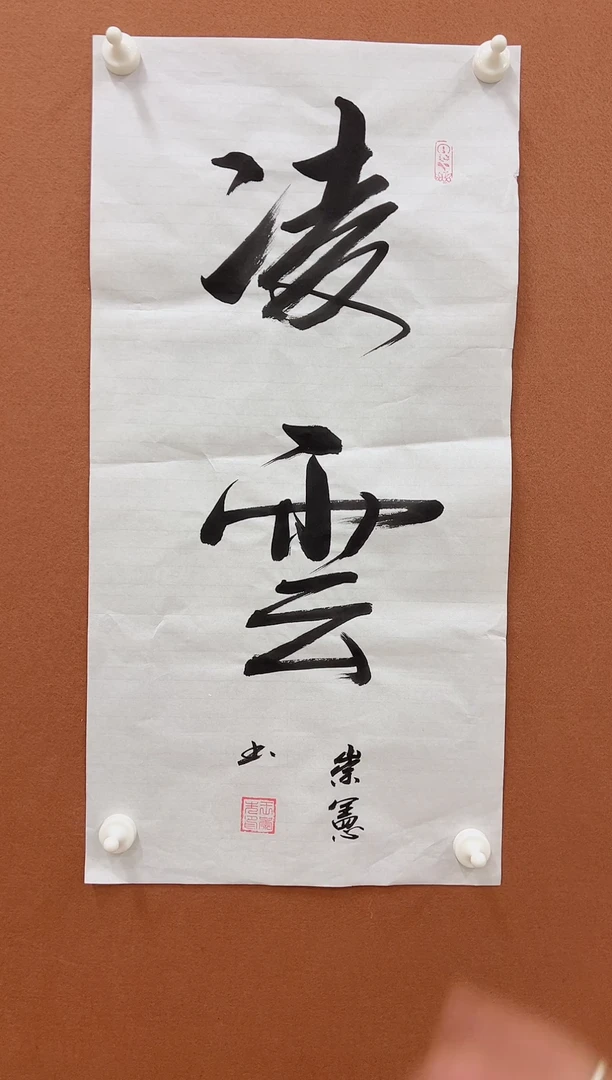 凌
雲
崇憲
书